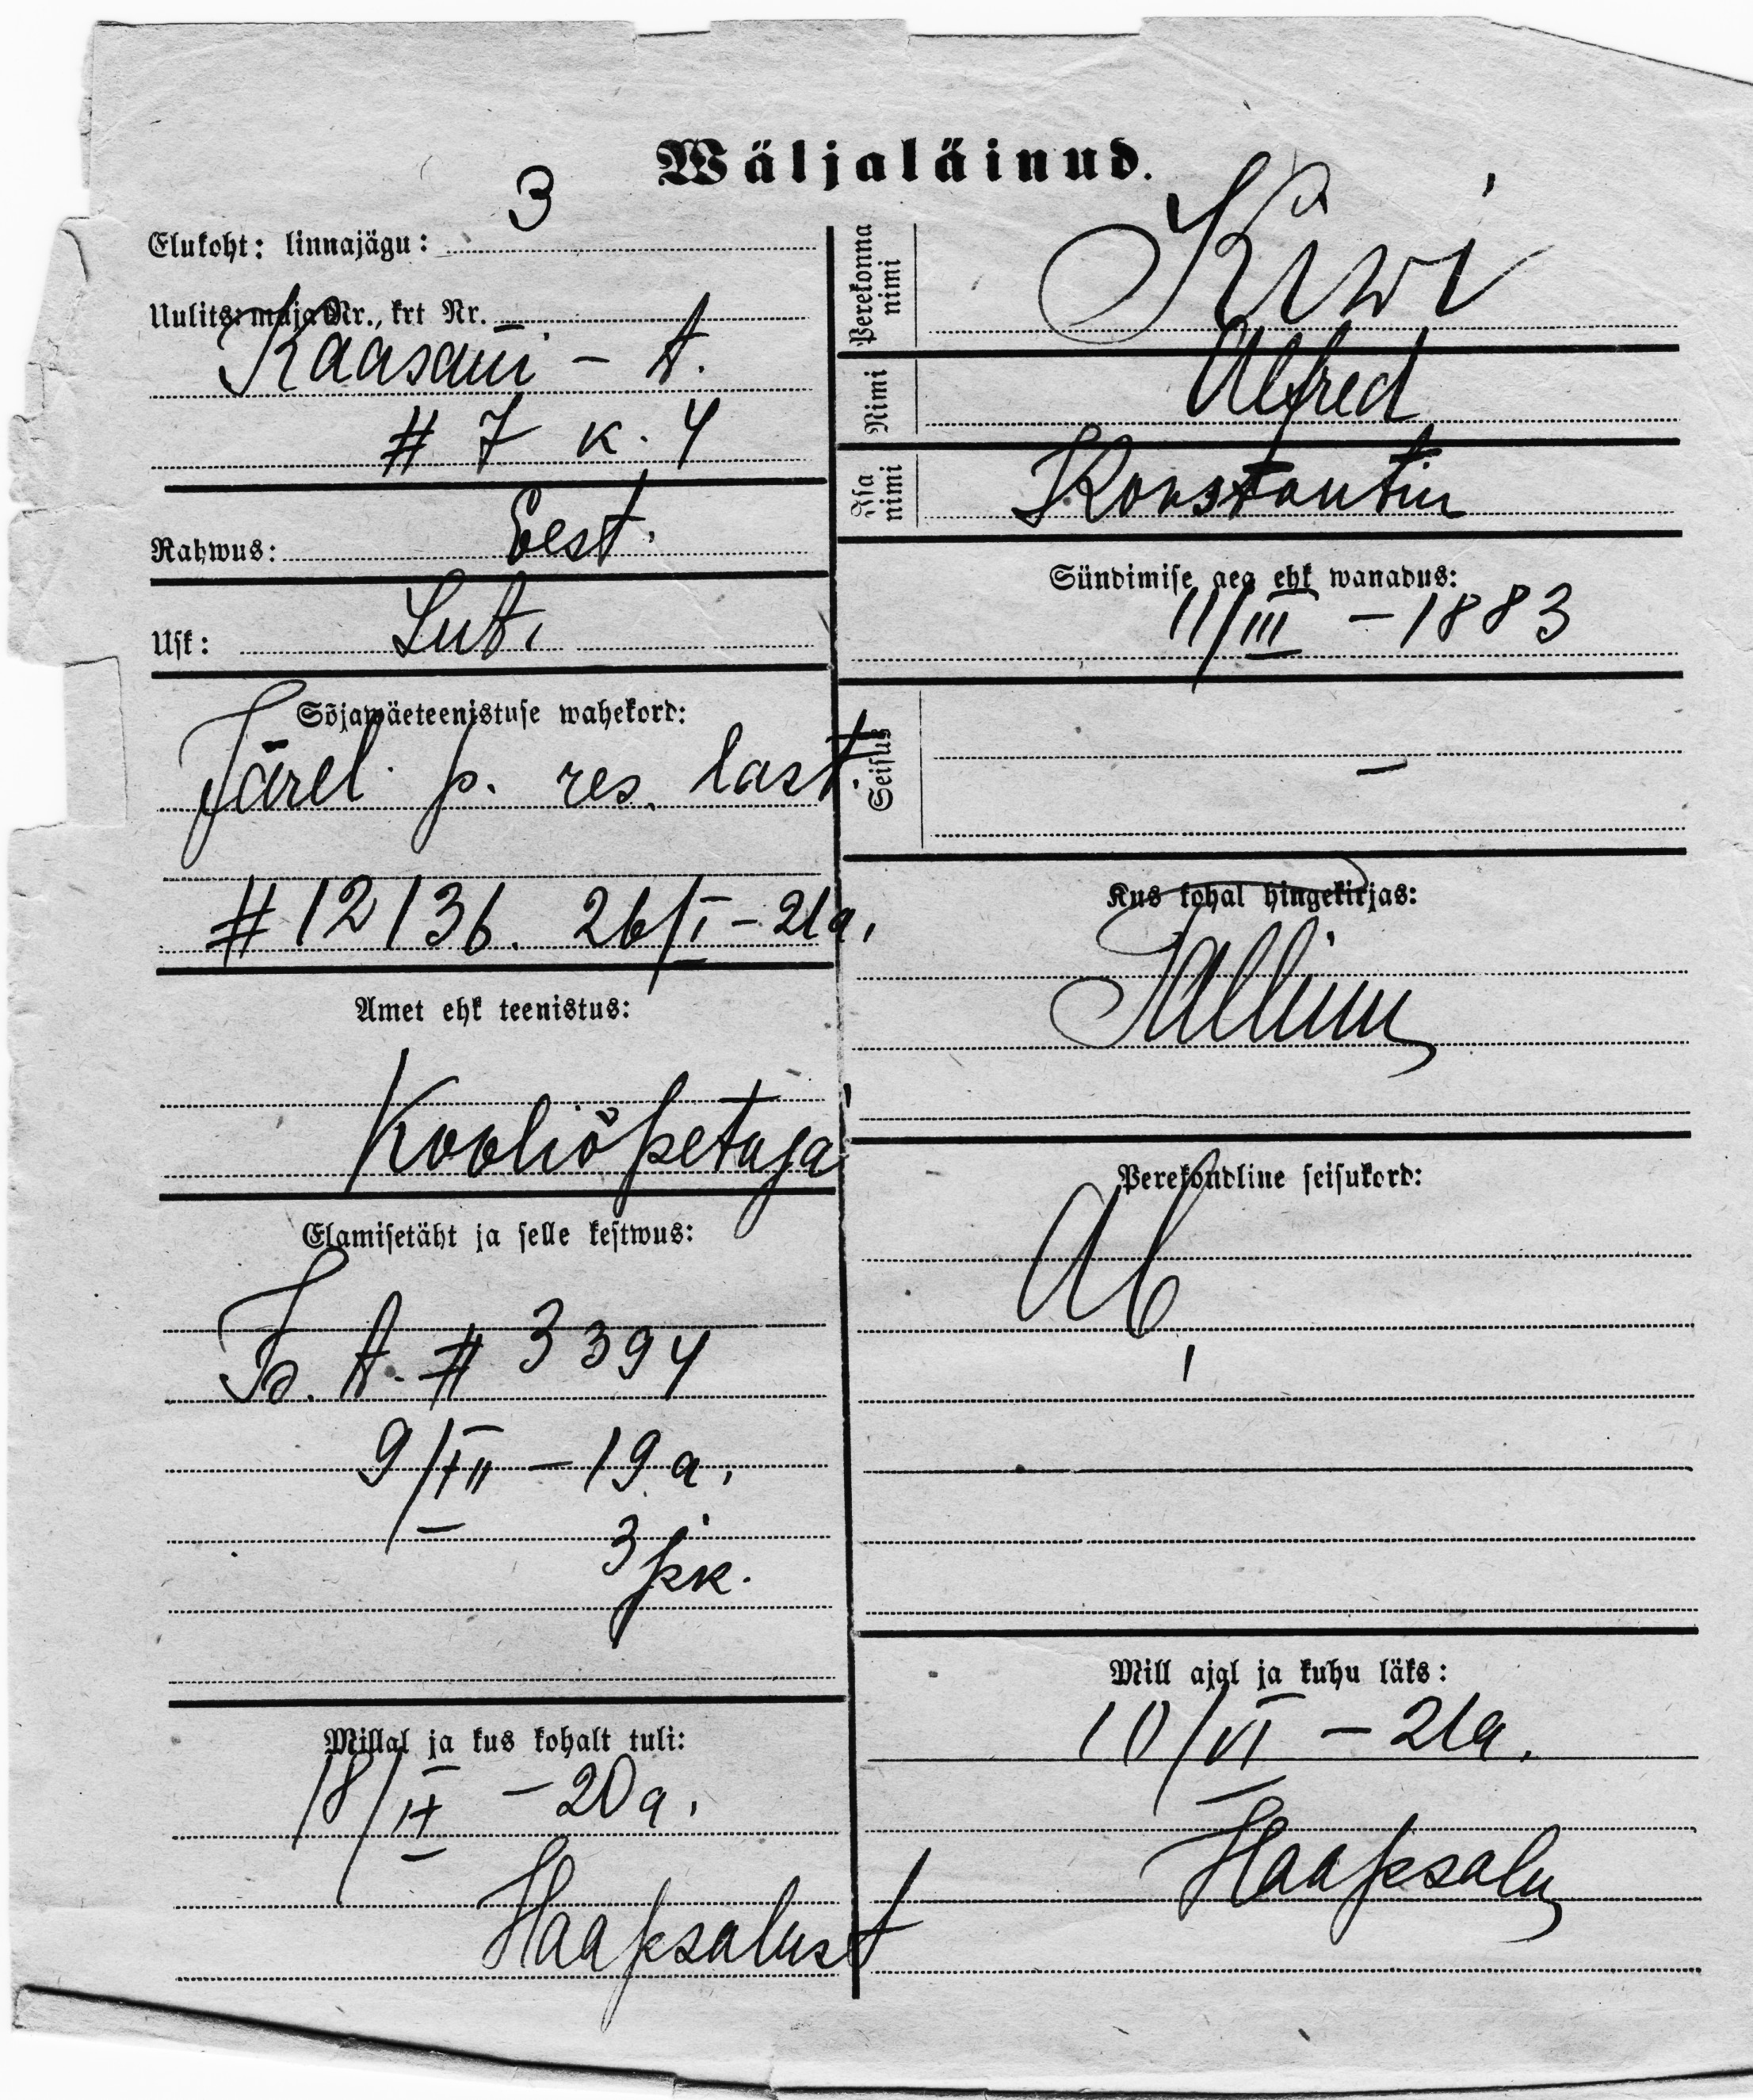 Wäljaläinud.
Elukoht: linnajägu: 3
Uulits: maja Nr., krt Nr.
Kaasani - t.
# 7 k. 4
Rahwus: Eest.
Usk: Lut.
Sõjawäeteenistuse wahekord:
Järel p. res. last.
# 12136. 26/I - 21a.
Amet ehk teenistus:
Kooliõpetaja
Elamisetäht ja selle kestwus:
t. # 3394
9/XII - 19 a.
3 pk.
Millal ja kus kohalt tuli:
18/IX - 20 a.
Haapsalust
Perekonna nimi
Kiwi
Nimi
Alfred
Isa nimi
Konstantin
Sündimise aeg ehk wanadus:
11/III - 1883
Seisus
-
Kus kohal hingekirjas:
Tallinn
Perekondline seisukord:
Ab.
Mill ajal ja kuhu läks:
10/VI - 21a.
Haapsalu